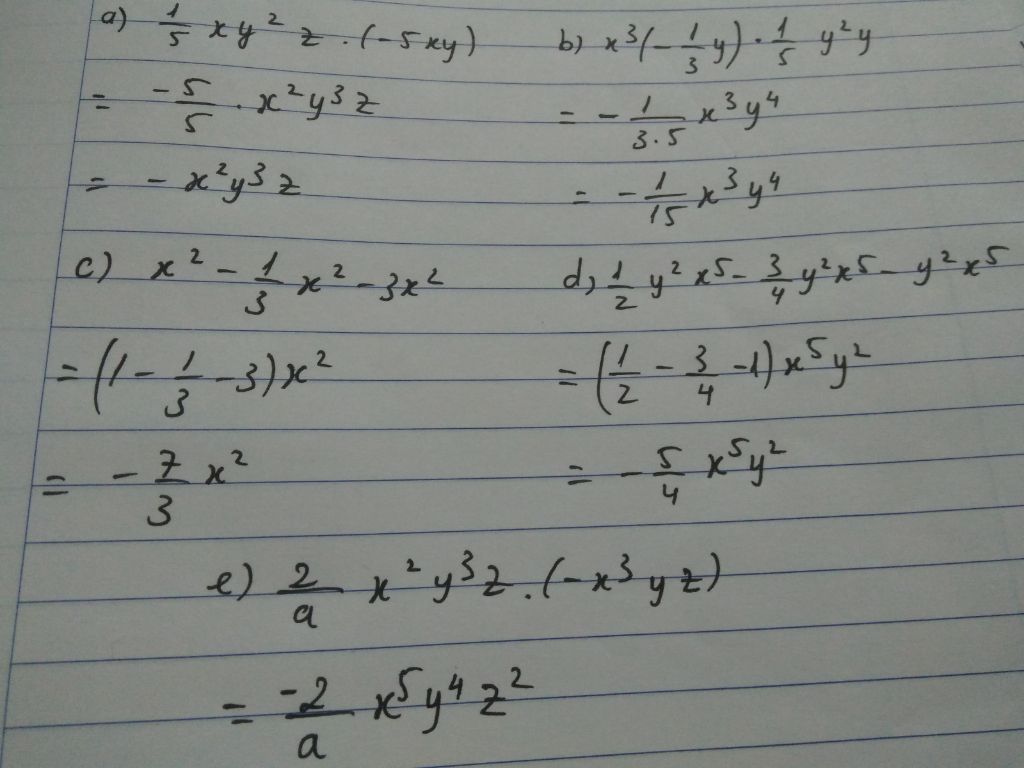 a) 1/5 xy² z . (-5xy)
= -5/5 . x²y³z
= - x²y³z
b) x³(-1/3 y) . 1/5 y²y
= - 1/3.5 x³y⁴
= - 1/15 x³y⁴
c) x² - 1/3 x² - 3x²
= (1 - 1/3 - 3)x²
= - 7/3 x²
d) 1/2 y² x⁵ - 3/4 y²x⁵ - y²x⁵
= (1/2 - 3/4 - 1)x⁵y²
= - 5/4 x⁵y²
e) 2/a x²y³z . (-x³yz)
= -2/a x⁵y⁴z²